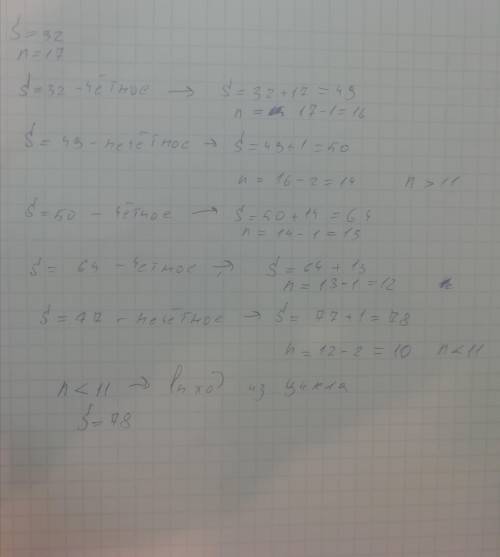 S=32
n=17
S=32-чётное → S=32+17=49
n= 17-1=16
S=49-нечётное → S=49+1=50
n=16-2=14 n>11
S=50-чётное → S=50+14=64
n=14-1=13
S=64-чётное → S=64+13
n=13-1=12
S=77-нечётное → S=77+1=78
n=12-2=10 n<11
n<11 → выход из цикла
S=78